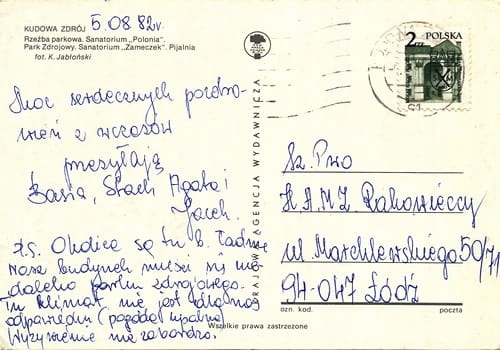 KUDOWA ZDRÓJ 5.08 82r.
Rzeźba parkowa. Sanatorium „Polonia".
Park Zdrojowy. Sanatorium „Zameczek". Pijalnia
fot. K. Jabłoński
Moc serdecznych pozdro-
wień z wczasów
przesyłają
Basia, Stach Agata i
Jacek.
P.S. Okolice są tu b. ładne
Nasz budynek mieści się nie
daleko parku zdrojowego.
Tu klimat nie jest dla nas
odpowiedni (pogoda upalna)
Wyżywienie nie za bardzo.
KRAJOWA AGENCJA WYDAWNICZA
2 zł POLSKA
Sz. P-wo
H.A.M.Z. Rakowieccy
ul. Marchlewskiego 50/71
94-047 Łódź
ozn. kod poczta
Wszelkie prawa zastrzeżone